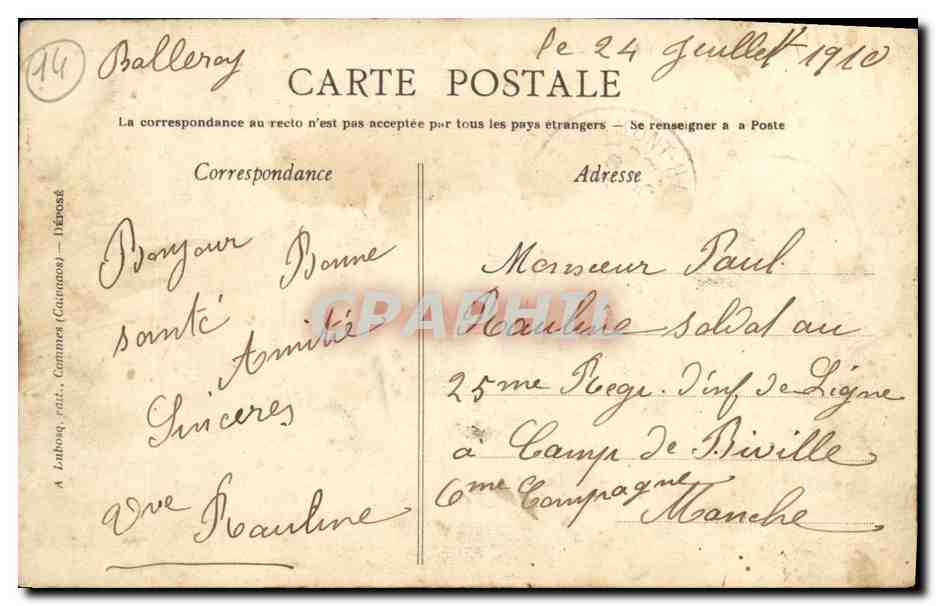 14
Balleroy
le 24 Juillet 1910
CARTE POSTALE
La correspondance au recto n'est pas acceptée par tous les pays étrangers — Se renseigner à a Poste
Correspondance
Bonjour Bonne
santé
Amitié
Sincères
Vve Rauline
Adresse
Monsieur Paul
Rauline soldat au
25me Regi. d'inf de Ligne
à Camp de Biville
6me Compagne
Manche
A Lubosq, édit., Commes (Calvados) — DÉPOSÉ
CPAPHIL